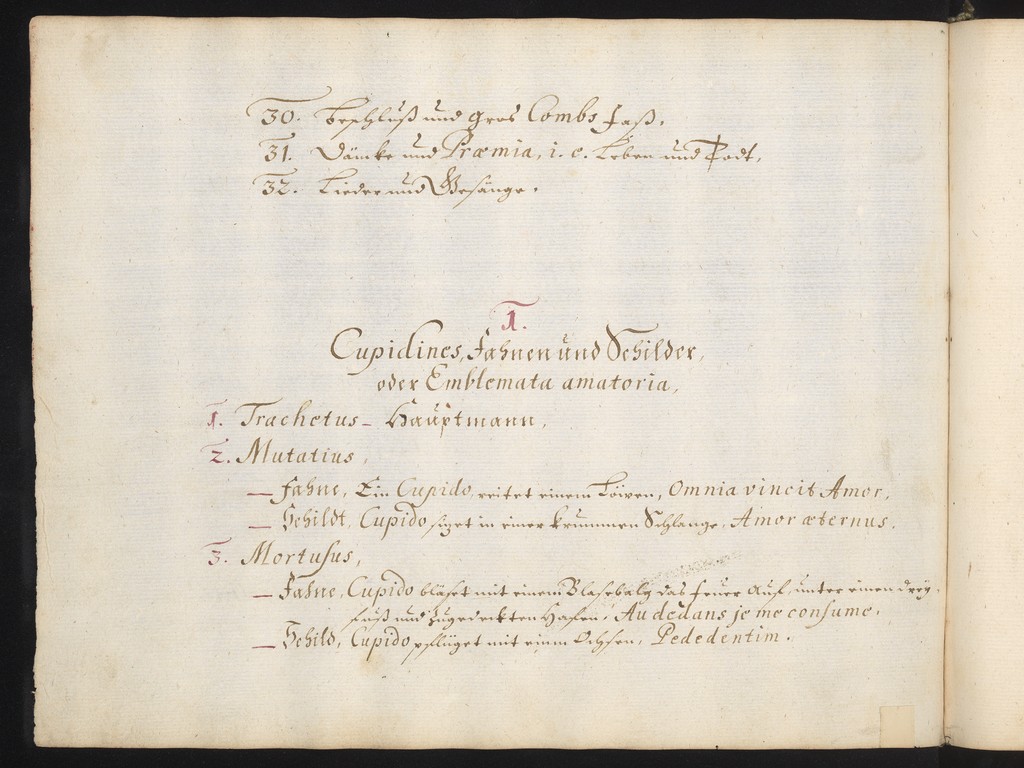 30. Beschluß und gros Combs Faß.
31. Däncke und Præmia, i. e. Leben und Todt,
32. Lieder und Gesänge.
1.
Cupidines, Fahnen und Schilder,
oder Emblemata amatoria,
1. Trachetus – Hauptmann,
2. Mutatius,
— Fahne, Ein Cupido reitet einem Löwen, Omnia vincit Amor,
— Schildt, Cupido sizet in einer krummen Schlange, Amor æternus,
3. Mortusus,
— Fahne, Cupido bläset mit einem Blasebalg das Feuer auf, unter einen drey,
fuß und zugedeckten Hafen, Au dedans je me consume,
— Schild, Cupido pflüget mit einem Ochsen, Pededentim.